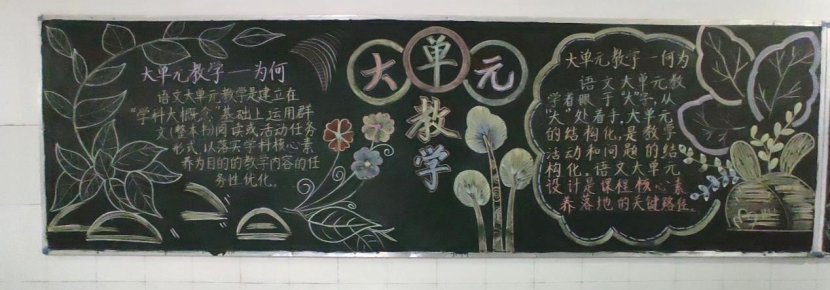 大单元教学——为何
语文大单元教学是建立在
“学科大概念”基础上,运用群
文(整本书)阅读或活动任务
形式,以落实学科核心素
养为目的的教学内容的任
务性优化。
大单元
教
学
大单元教学—何为
语文大单元教
学着眼于“大”字,从
“大”处着手,大单元
的结构化,是教学
活动和问题的结
构化。语文大单元
设计是课程核心素
养落地的关键路径。